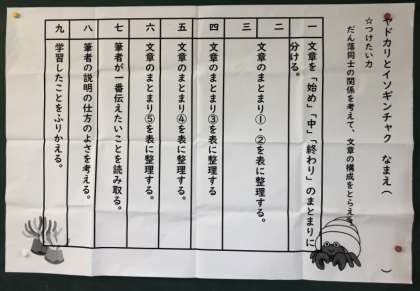 ヤドカリとイソギンチャク　なまえ（　　　）
☆つけたい力
だん落同士の関係を考えて、文章の構成をとらえる
一
文章を「始め」「中」「終わり」のまとまりに
分ける。
二
三
文章のまとまり①・②を表に整理する。
四
文章のまとまり③を表に整理する。
五
文章のまとまり④を表に整理する。
六
文章のまとまり⑤を表に整理する。
七
筆者が一番伝えたいことを読み取る。
八
筆者の説明の仕方のよさを考える。
九
学習したことをふりかえる。